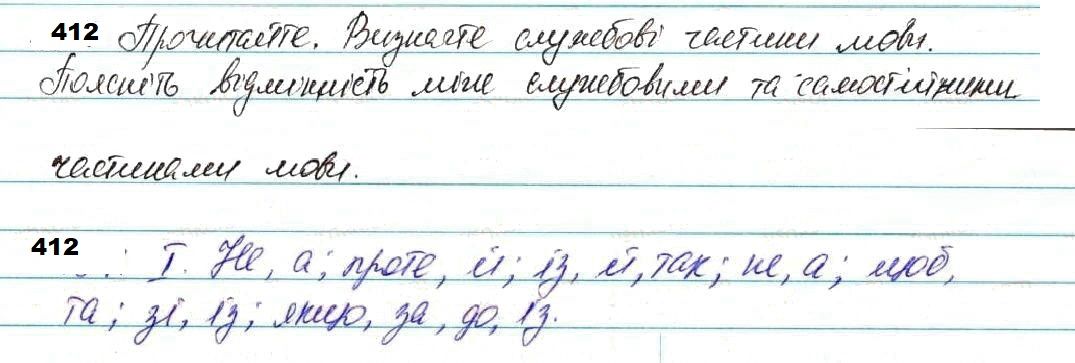 412 Прочитайте. Визначте службові частини мови.
Поясніть відмінність між службовими та самостійними
частинами мови.
412 І. Не, а; проте, й; із, й, так; не, а; щоб,
та; зі, із; якщо, за, до, із.